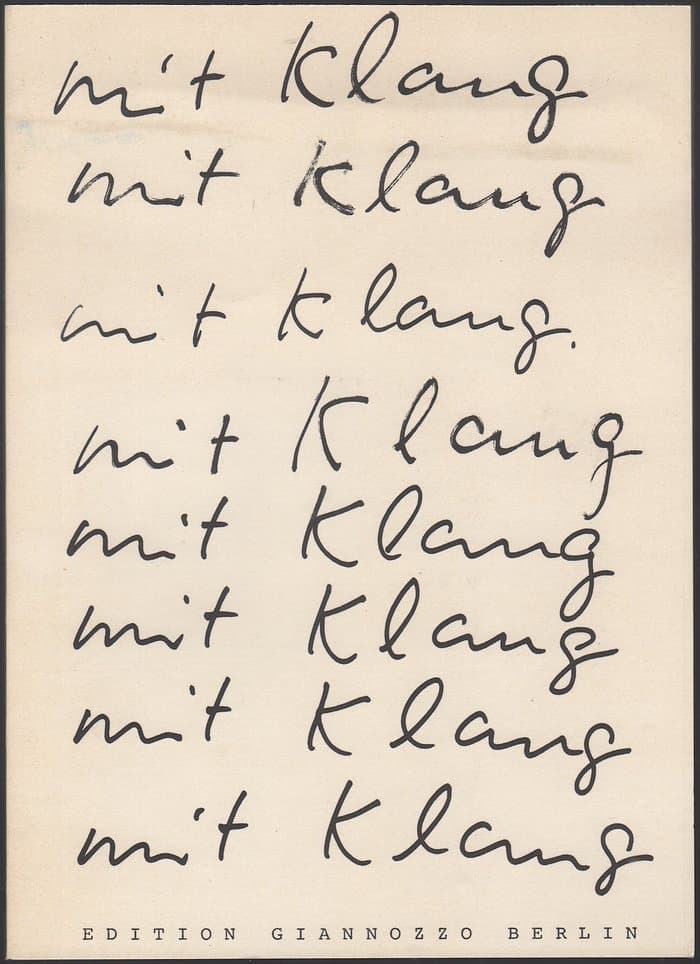 mit Klang
mit Klang
mit Klang.
mit Klang
mit Klang
mit Klang
mit Klang
mit Klang
EDITION GIANNOZZO BERLIN